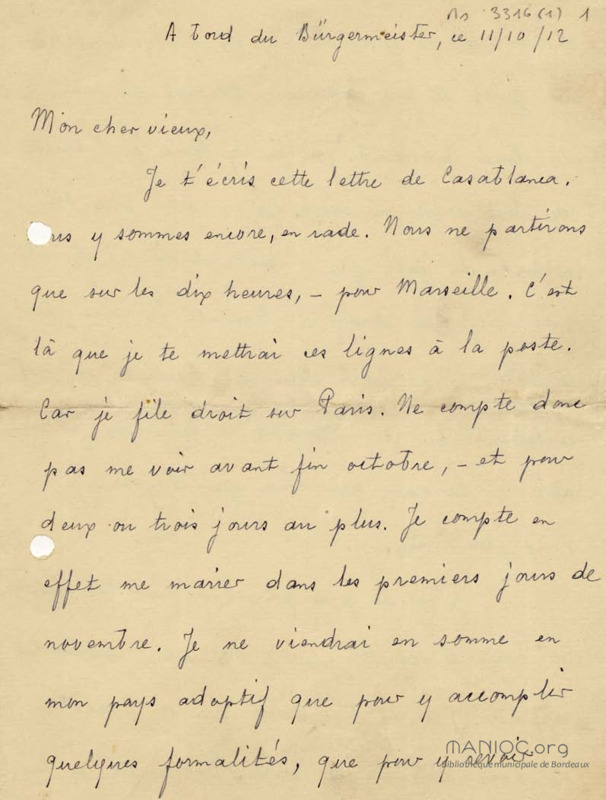 Ms 3316 (1) 1
A bord du Bürgermeister, ce 11/10/12
Mon cher vieux,
Je t'écris cette lettre de Casablanca.
us y sommes encore, en rade. Nous ne partirons
que sur les dix heures, – pour Marseille. C'est
là que je te mettrai ces lignes à la poste.
Car je file droit sur Paris. Ne compte donc
pas me voir avant fin octobre, – et pour
deux ou trois jours au plus. Je compte en
effet me marier dans les premiers jours de
novembre. Je ne viendrai en somme en
mon pays adoptif que pour y accomplir
quelques formalités, que pour y revoir
MANIOC.org
Bibliothèque municipale de Bordeaux